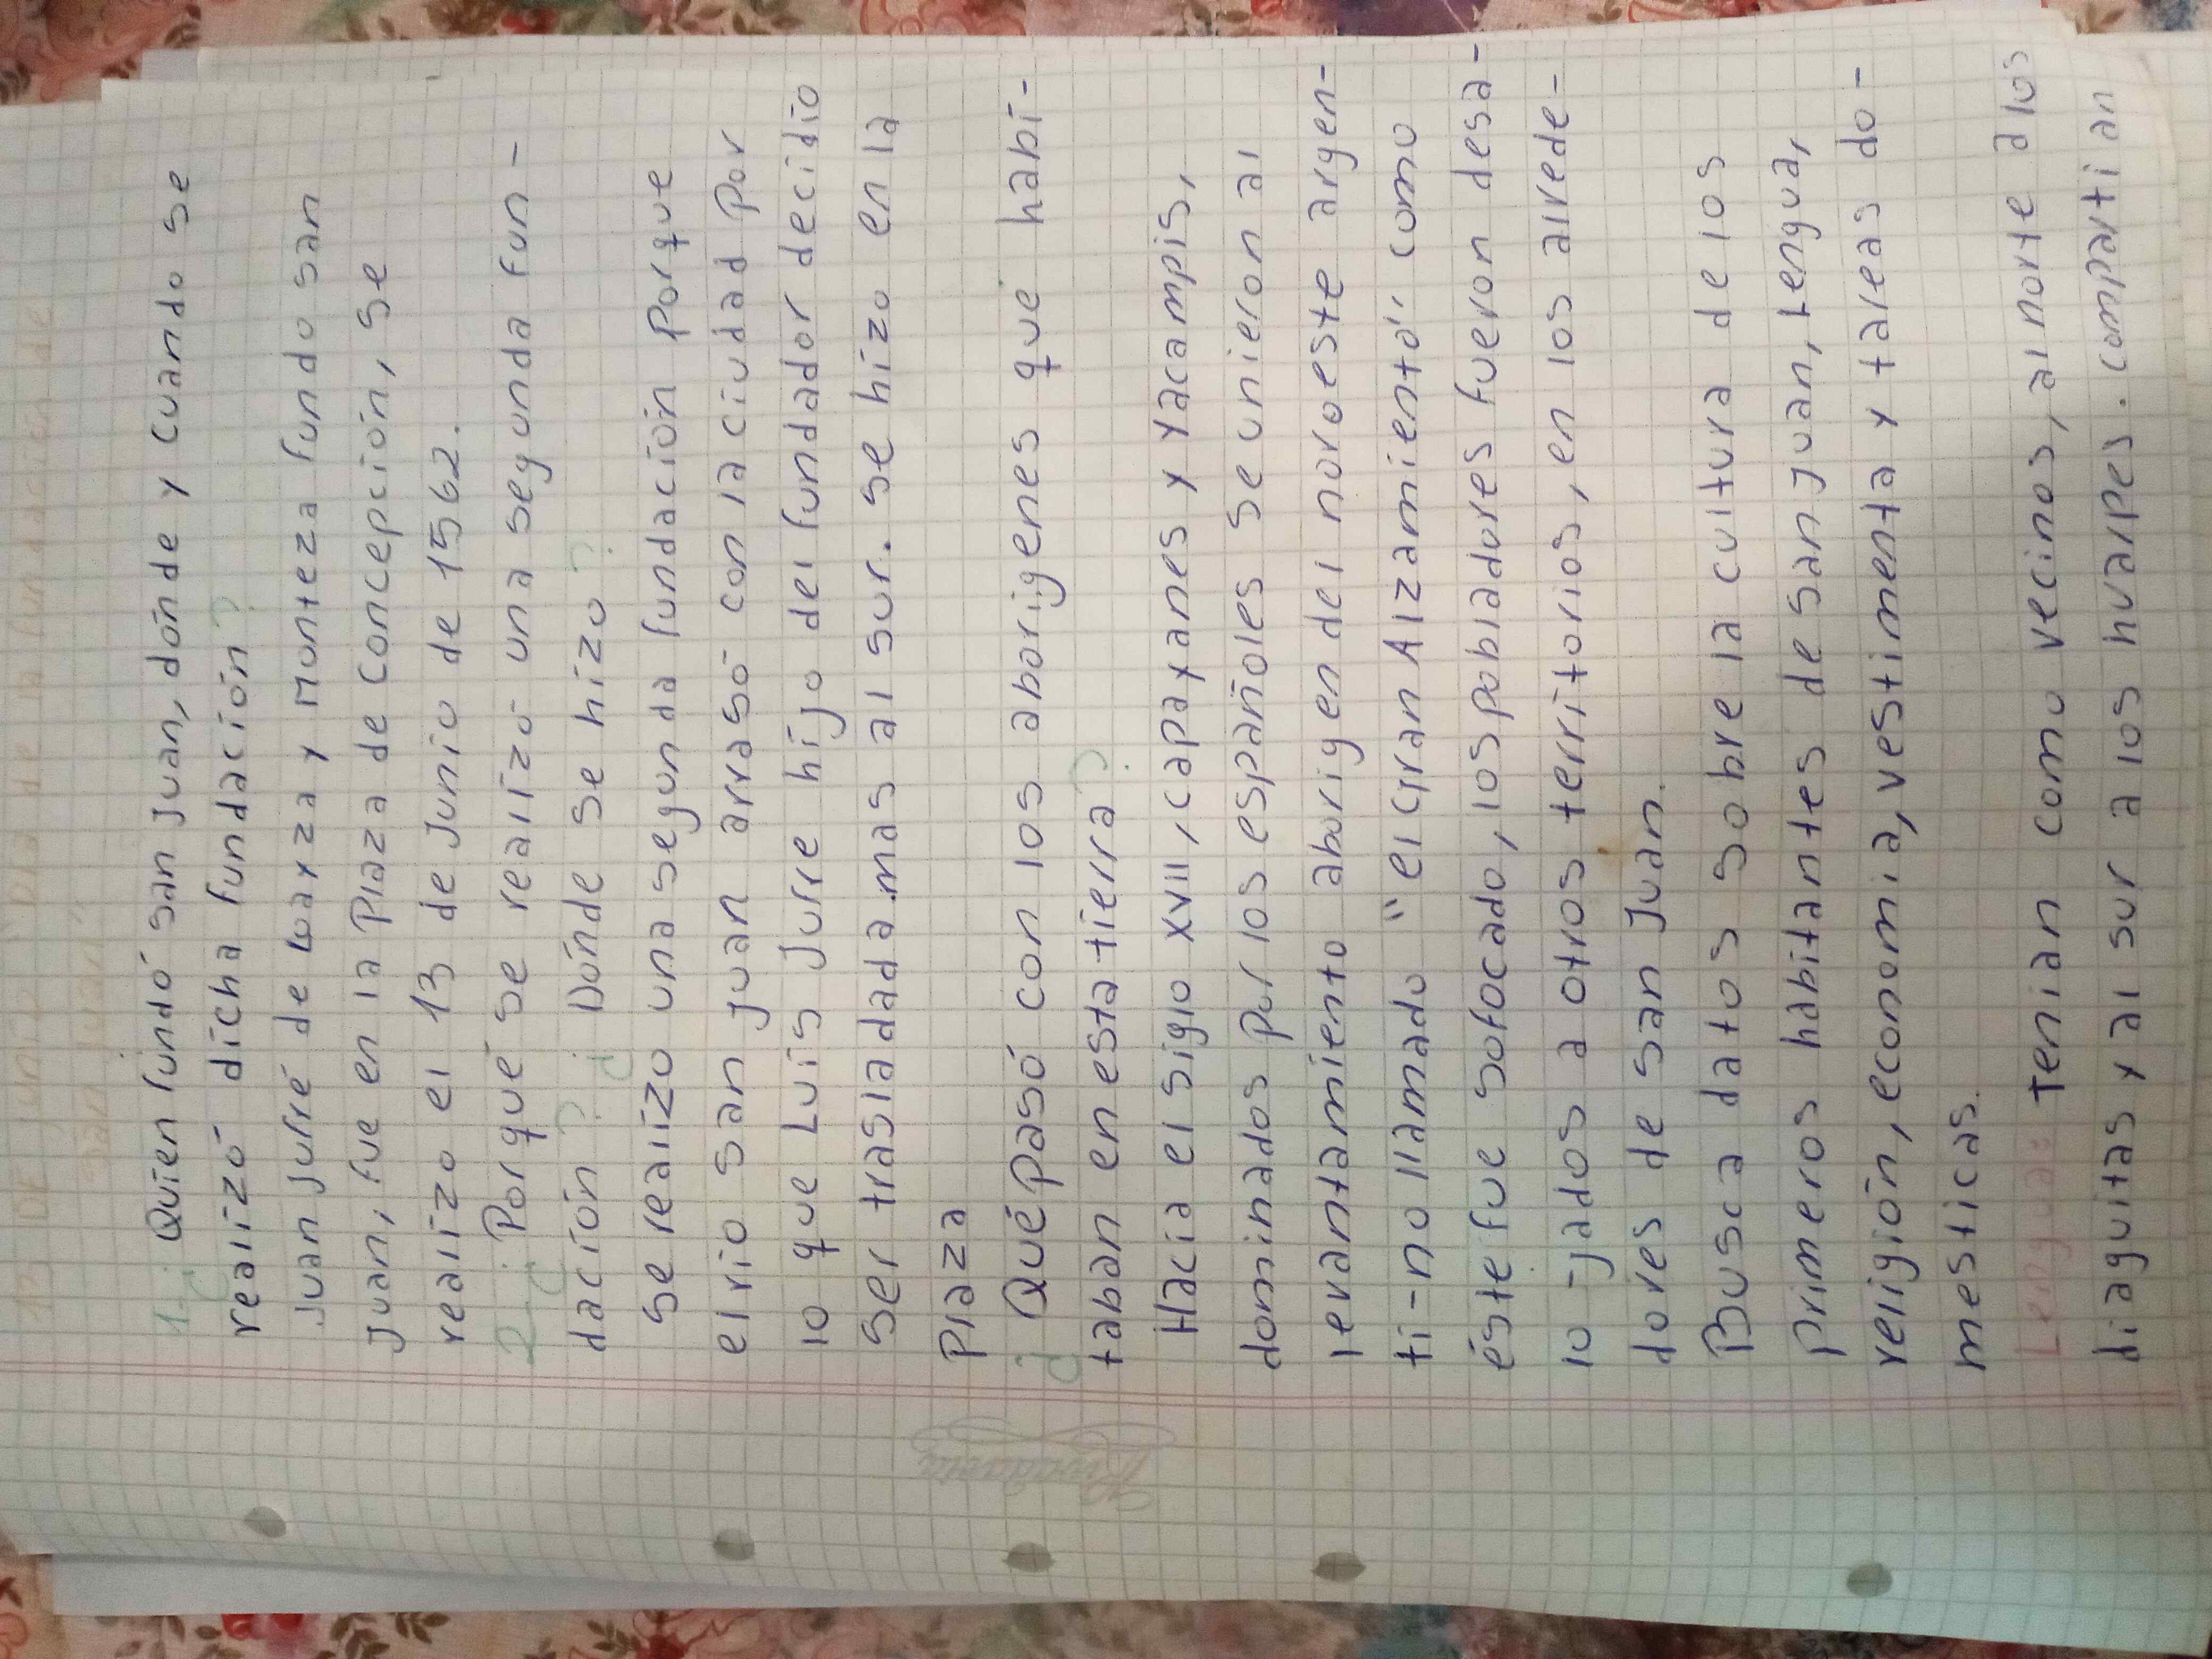 13 DE Junio: Día de la fundación de
San Juan
1-¿Quien fundó san Juan, dónde y cuando se
realizó dicha fundación?
Juan Jufré de Loayza y Monteza fundo san
Juan, fue en la Plaza de Concepción, se
realizo el 13 de Junio de 1562.
2-¿Porqué se realizó una segunda fun-
dación? ¿Dónde se hizo?
Se realizo una segunda fundación Porque
el rio san Juan arrasó con la ciudad por
lo que Luis Jufre hijo del fundador decidio
ser trasladada.mas al sur. se hizo en la
Plaza
¿Qué pasó con los aborigenes que habi-
taban en esta tierra?
Hacia el siglo XVIII, capayanes y Yacampis,
dominados por los españoles se unieron al
levantamiento aborigen del noroeste argen-
ti-no llamado "el Gran Alzamiento" como
éste fue sofocado, los pobladores fueron desa-
lo-jados a otros territorios, en los alrede-
dores de san Juan.
Busca datos sobre la cultura de los
primeros habitantes de San Juan, Lengua,
religión, economia, vestimenta y tareas do-
mesticas.
Lengua: Tenian como vecinos, al norte a los
diaguitas y al sur a los huarpes. compartian
Rivadavia